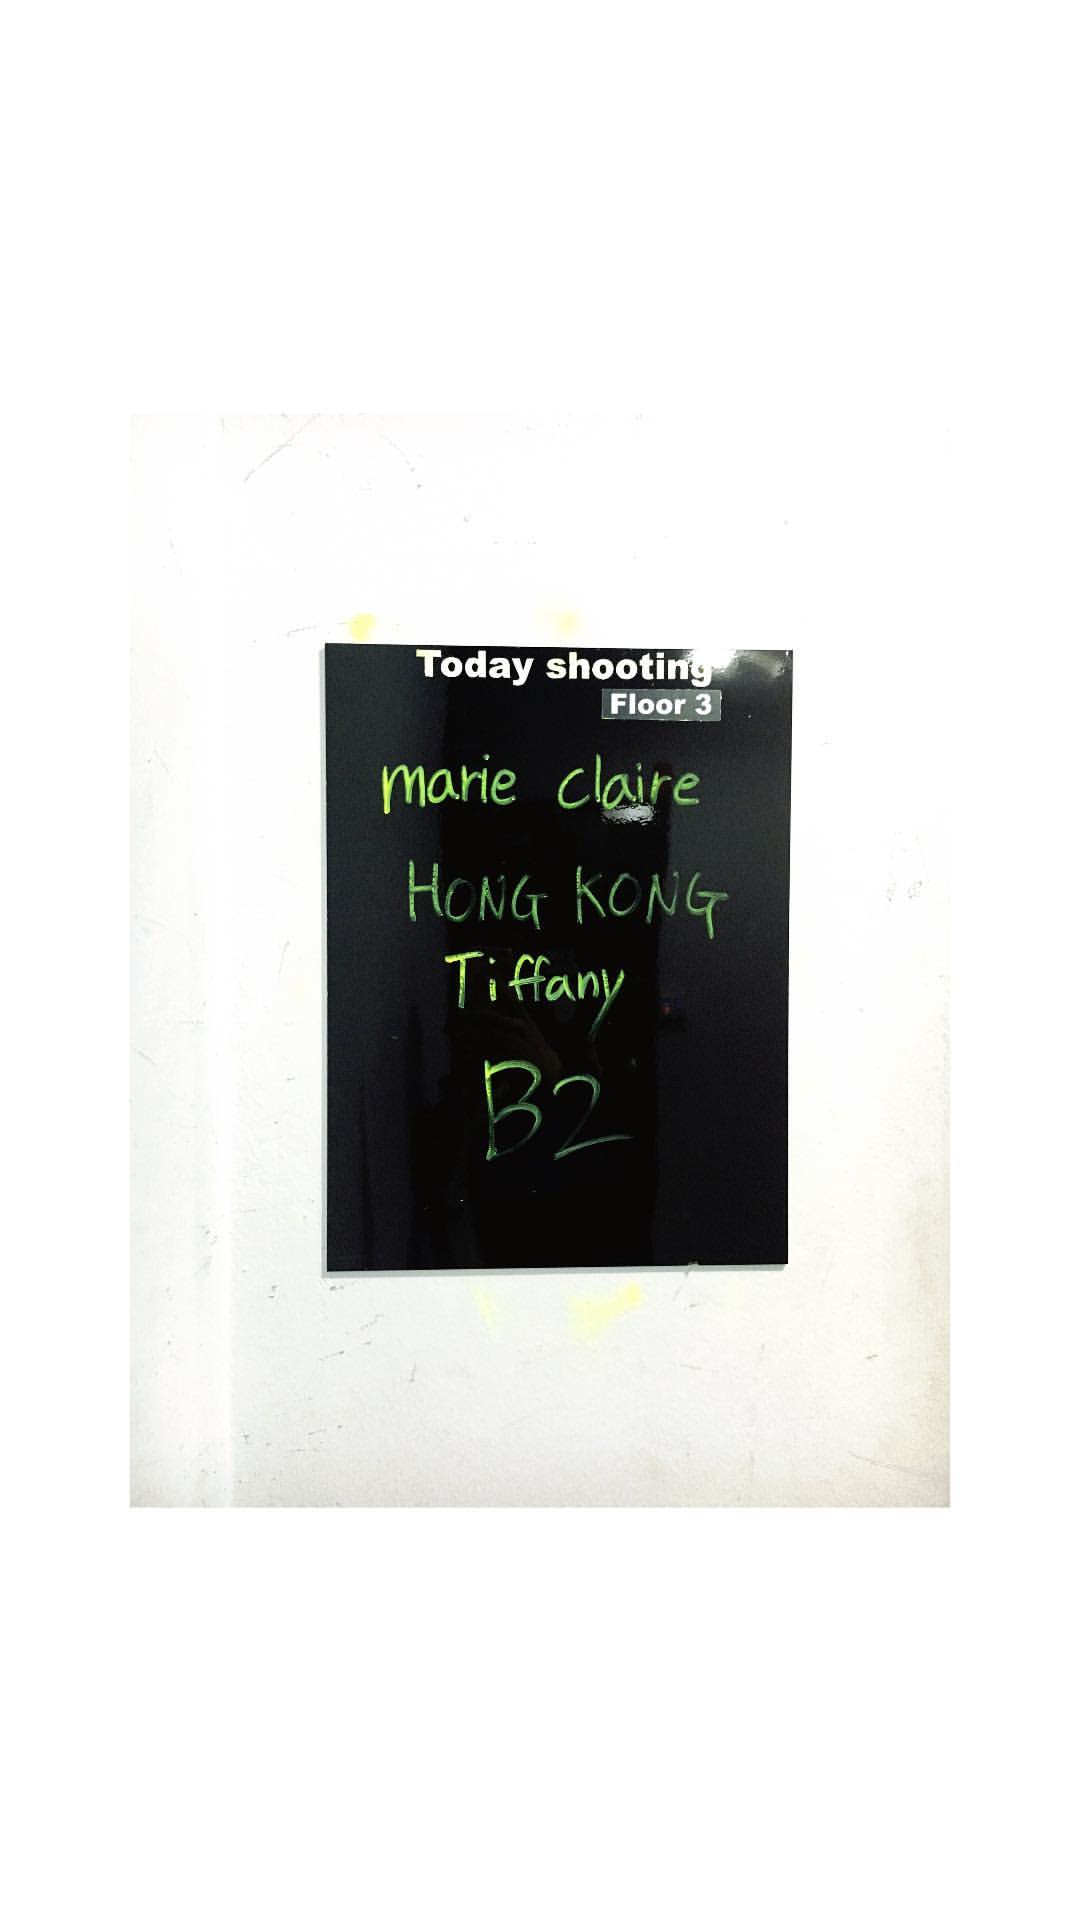 Today shooting
Floor 3
marie claire
HONG KONG
Tiffany
B2